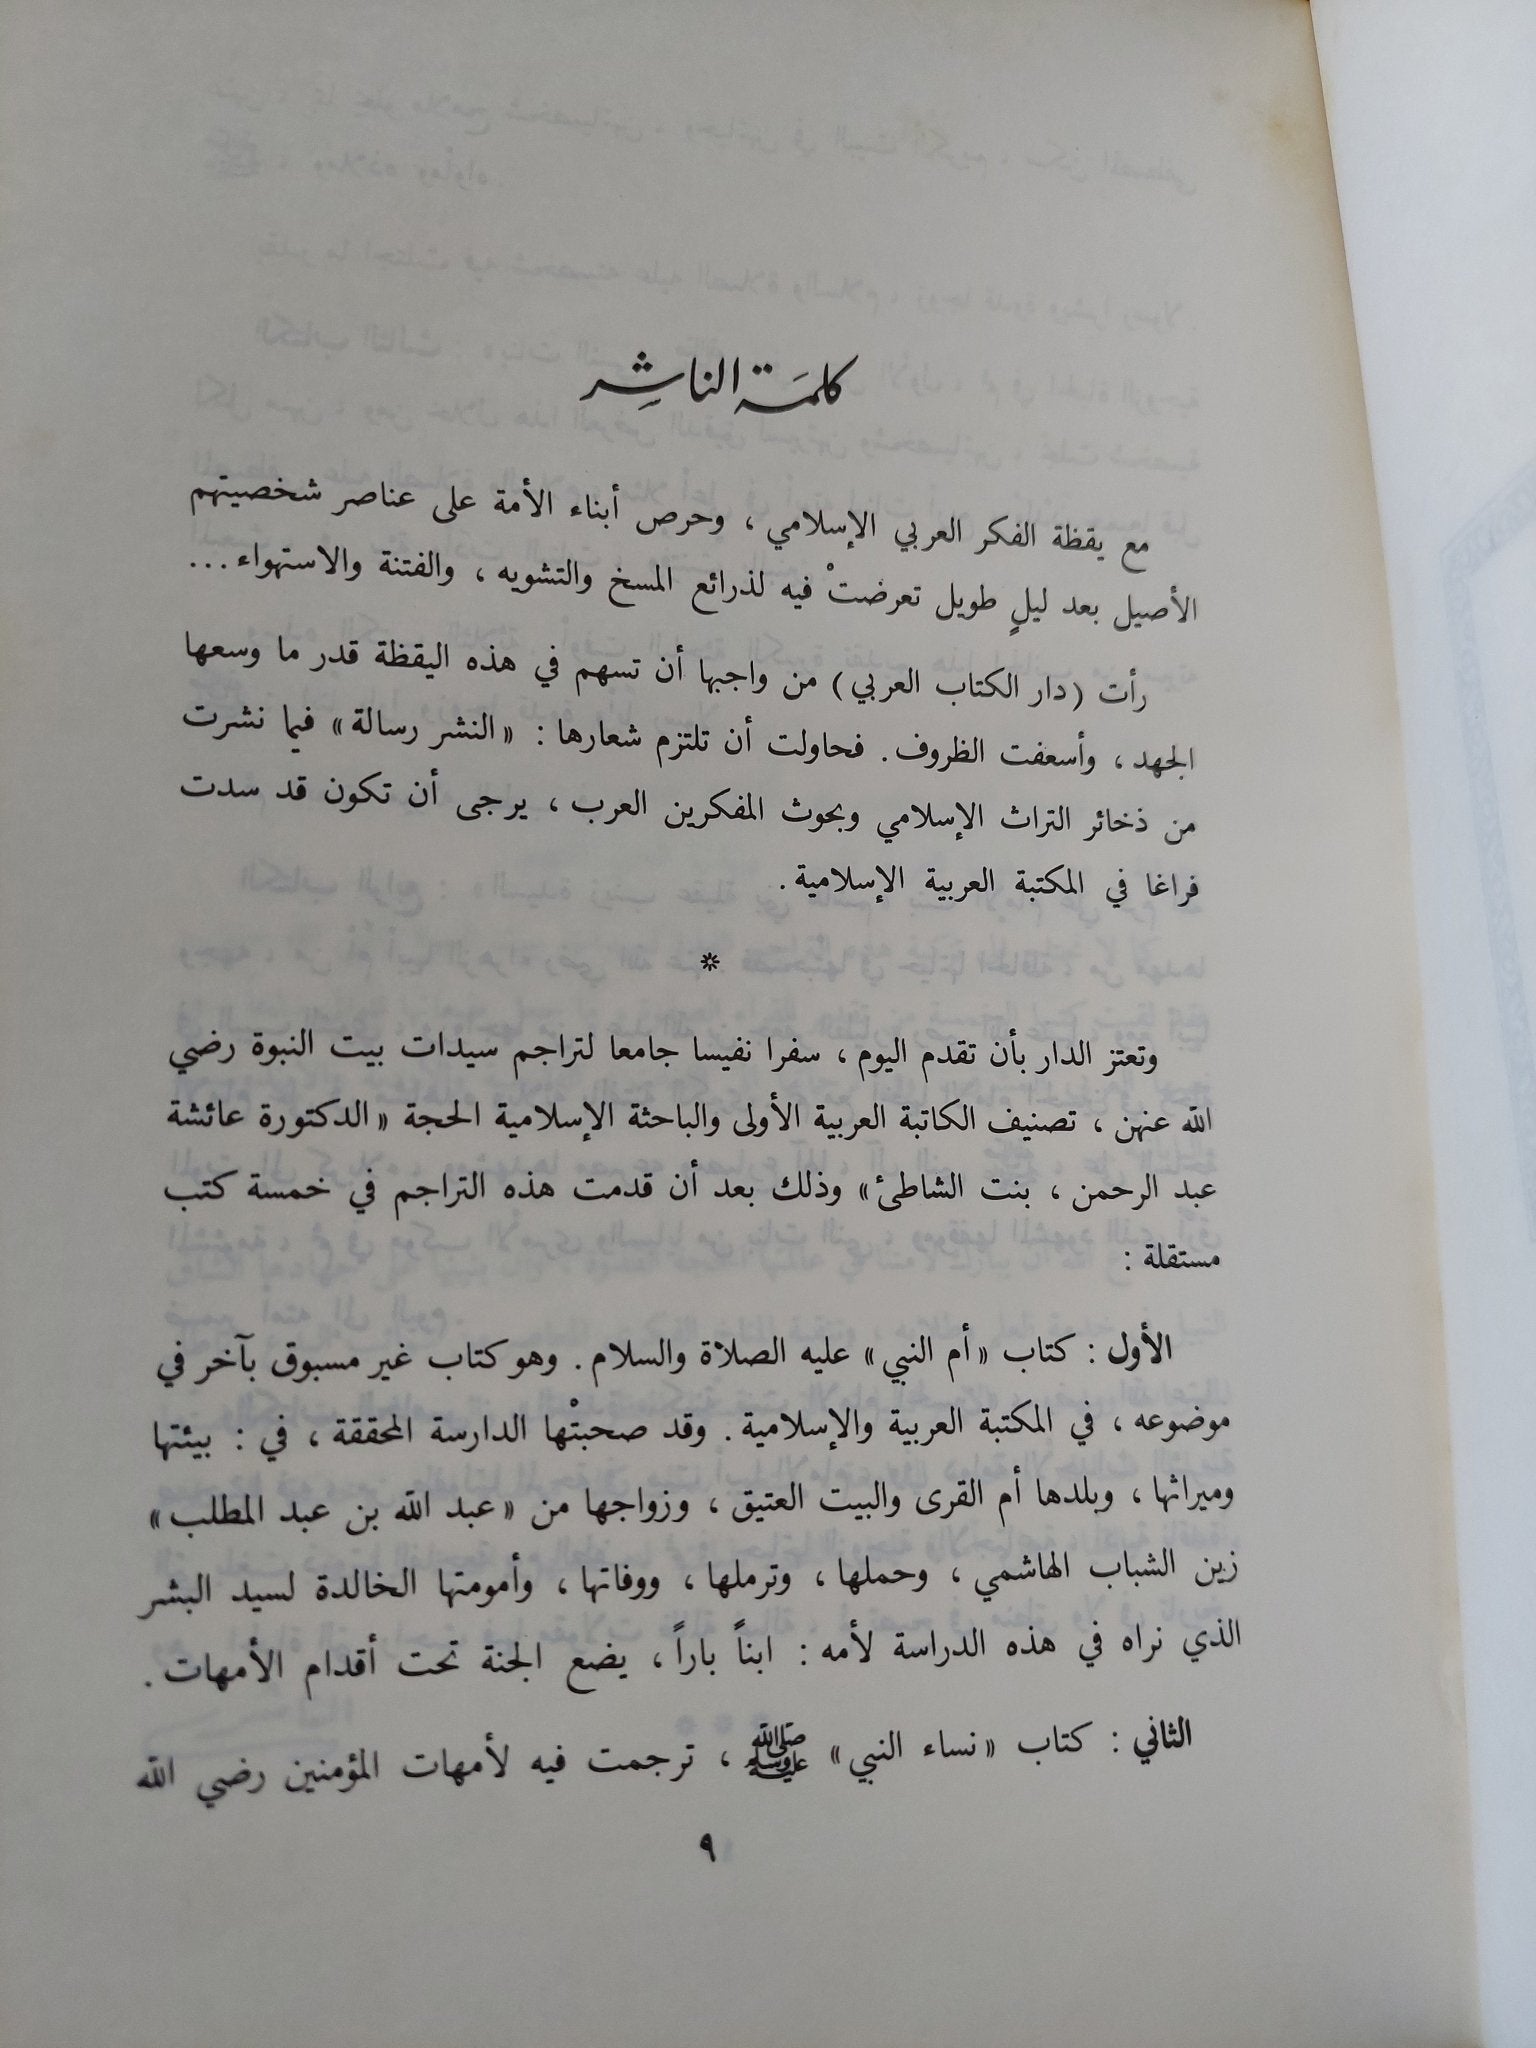 كلمَة الناشِر
مع يقظة الفكر العربي الإسلامي ، وحرص أبناء الأمة على عناصر شخصيتهم
الأصيل بعد ليلٍ طويل تعرضتْ فيه لذرائع المسخ والتشويه ، والفتنة والاستهواء ...
رأت (دار الكتاب العربي) من واجبها أن تسهم في هذه اليقظة قدر ما وسعها
الجهد ، وأسعفت الظروف . فحاولت أن تلتزم شعارها : «النشر رسالة» فيما نشرت
من ذخائر التراث الإسلامي وبحوث المفكرين العرب ، يرجى أن تكون قد سدت
فراغا في المكتبة العربية الإسلامية .
*
وتعتز الدار بأن تقدم اليوم ، سفرا نفيسا جامعا لتراجم سيدات بيت النبوة رضي
الله عنهن ، تصنيف الكاتبة العربية الأولى والباحثة الإسلامية الحجة «الدكتورة عائشة
عبد الرحمن ، بنت الشاطئ» وذلك بعد أن قدمت هذه التراجم في خمسة كتب
مستقلة :
الأول : كتاب «أم النبي» عليه الصلاة والسلام . وهو كتاب غير مسبوق بآخر في
موضوعه ، في المكتبة العربية والإسلامية . وقد صحبتْها الدارسة المحققة ، في : بيئتها
وميراثها ، وبلدها أم القرى والبيت العتيق ، وزواجها من «عبد الله بن عبد المطلب»
زين الشباب الهاشمي ، وحملها ، وترملها ، ووفاتها ، وأمومتها الخالدة لسيد البشر
الذي نراه في هذه الدراسة لأمه : ابناً باراً ، يضع الجنة تحت أقدام الأمهات .
الثاني : كتاب «نساء النبي» ﷺ ، ترجمت فيه لأمهات المؤمنين رضي الله
٩